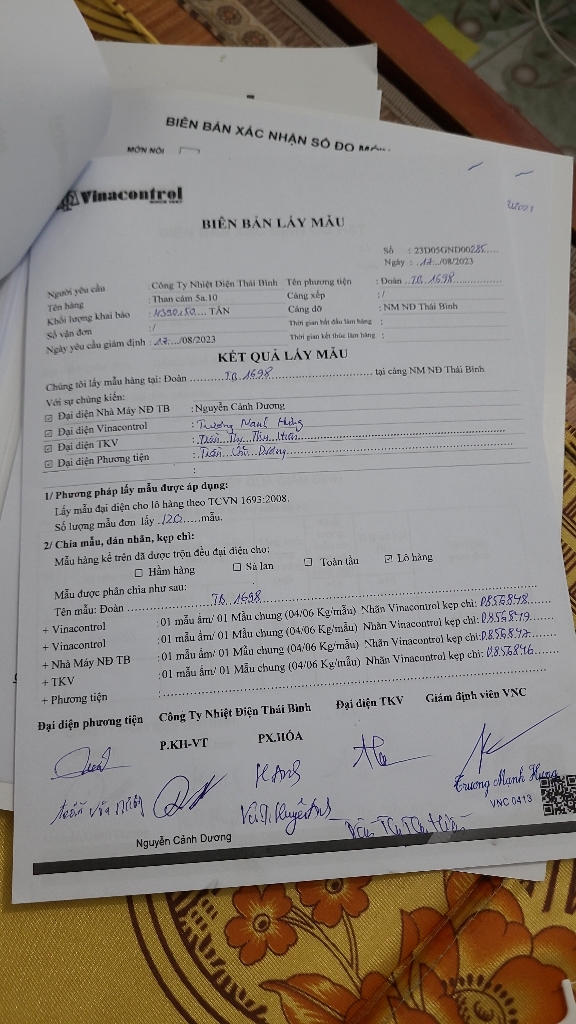 BIÊN BẢN XÁC NHẬN SỐ ĐO
MÓN NỒI
Vinacontrol
BIÊN BẢN LẤY MẪU
Số : 23D05GND00285
Ngày : 17/08/2023
Người yêu cầu : Công Ty Nhiệt Điện Thái Bình Tên phương tiện : Đoàn TB 1698
Tên hàng : Than cám 5a.10 Cảng xếp : /
Khối lượng khai báo : TẤN Cảng dỡ : NM NĐ Thái Bình
Số vận đơn : / Thời gian bắt đầu làm hàng :
Ngày yêu cầu giám định : 17/08/2023 Thời gian kết thúc làm hàng :
KẾT QUẢ LẤY MẪU
Chúng tôi lấy mẫu hàng tại: Đoàn TB 1698 tại cảng NM NĐ Thái Bình
Với sự chứng kiến:
☑ Đại diện Nhà Máy NĐ TB : Nguyễn Cảnh Dương
☑ Đại diện Vinacontrol : Trương Mạnh Hưng
☑ Đại diện TKV : Trần Thị Thu Hiền
☑ Đại diện Phương tiện : Trần Dương
:
1/ Phương pháp lấy mẫu được áp dụng:
Lấy mẫu đại diện cho lô hàng theo TCVN 1693:2008.
Số lượng mẫu đơn lấy 120 mẫu.
2/ Chia mẫu, dán nhãn, kẹp chì:
Mẫu hàng kể trên đã được trộn đều đại diện cho:
☐ Hầm hàng ☐ Sà lan ☐ Toàn tàu ☑ Lô hàng
Mẫu được phân chia như sau:
Tên mẫu: Đoàn TB 1698
+ Vinacontrol : 01 mẫu ẩm/ 01 Mẫu chung (04/06 Kg/mẫu) Nhãn Vinacontrol kẹp chì: 0856848
+ Vinacontrol : 01 mẫu ẩm/ 01 Mẫu chung (04/06 Kg/mẫu) Nhãn Vinacontrol kẹp chì: 0856849
+ Nhà Máy NĐ TB : 01 mẫu ẩm/ 01 Mẫu chung (04/06 Kg/mẫu) Nhãn Vinacontrol kẹp chì: 0856847
+ TKV : 01 mẫu ẩm/ 01 Mẫu chung (04/06 Kg/mẫu) Nhãn Vinacontrol kẹp chì: 0856846
+ Phương tiện :
Đại diện phương tiện Công Ty Nhiệt Điện Thái Bình Đại diện TKV Giám định viên VNC
P.KH-VT PX.HÓA
Trương Mạnh Hưng
VNC 0413
Trần Thị Thu Hiền
Nguyễn Cảnh Dương